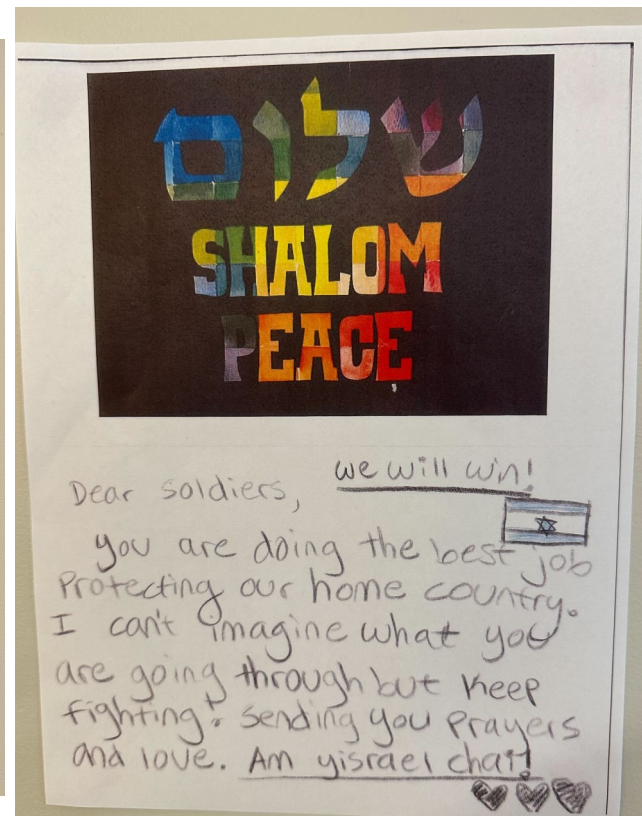 שלום
SHALOM
PEACE
we will win!
Dear soldiers,
you are doing the best job
Protecting our home country.
I can't imagine what you
are going through but keep
fighting! Sending you prayers
and love. Am yisrael chai!